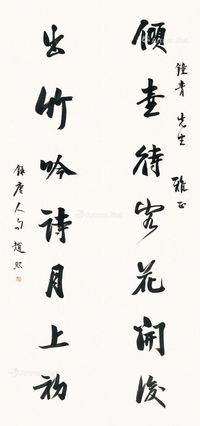 鍾青先生 雅正
傾壺待客花開後
出竹吟詩月上初
錄唐人句 趙熙